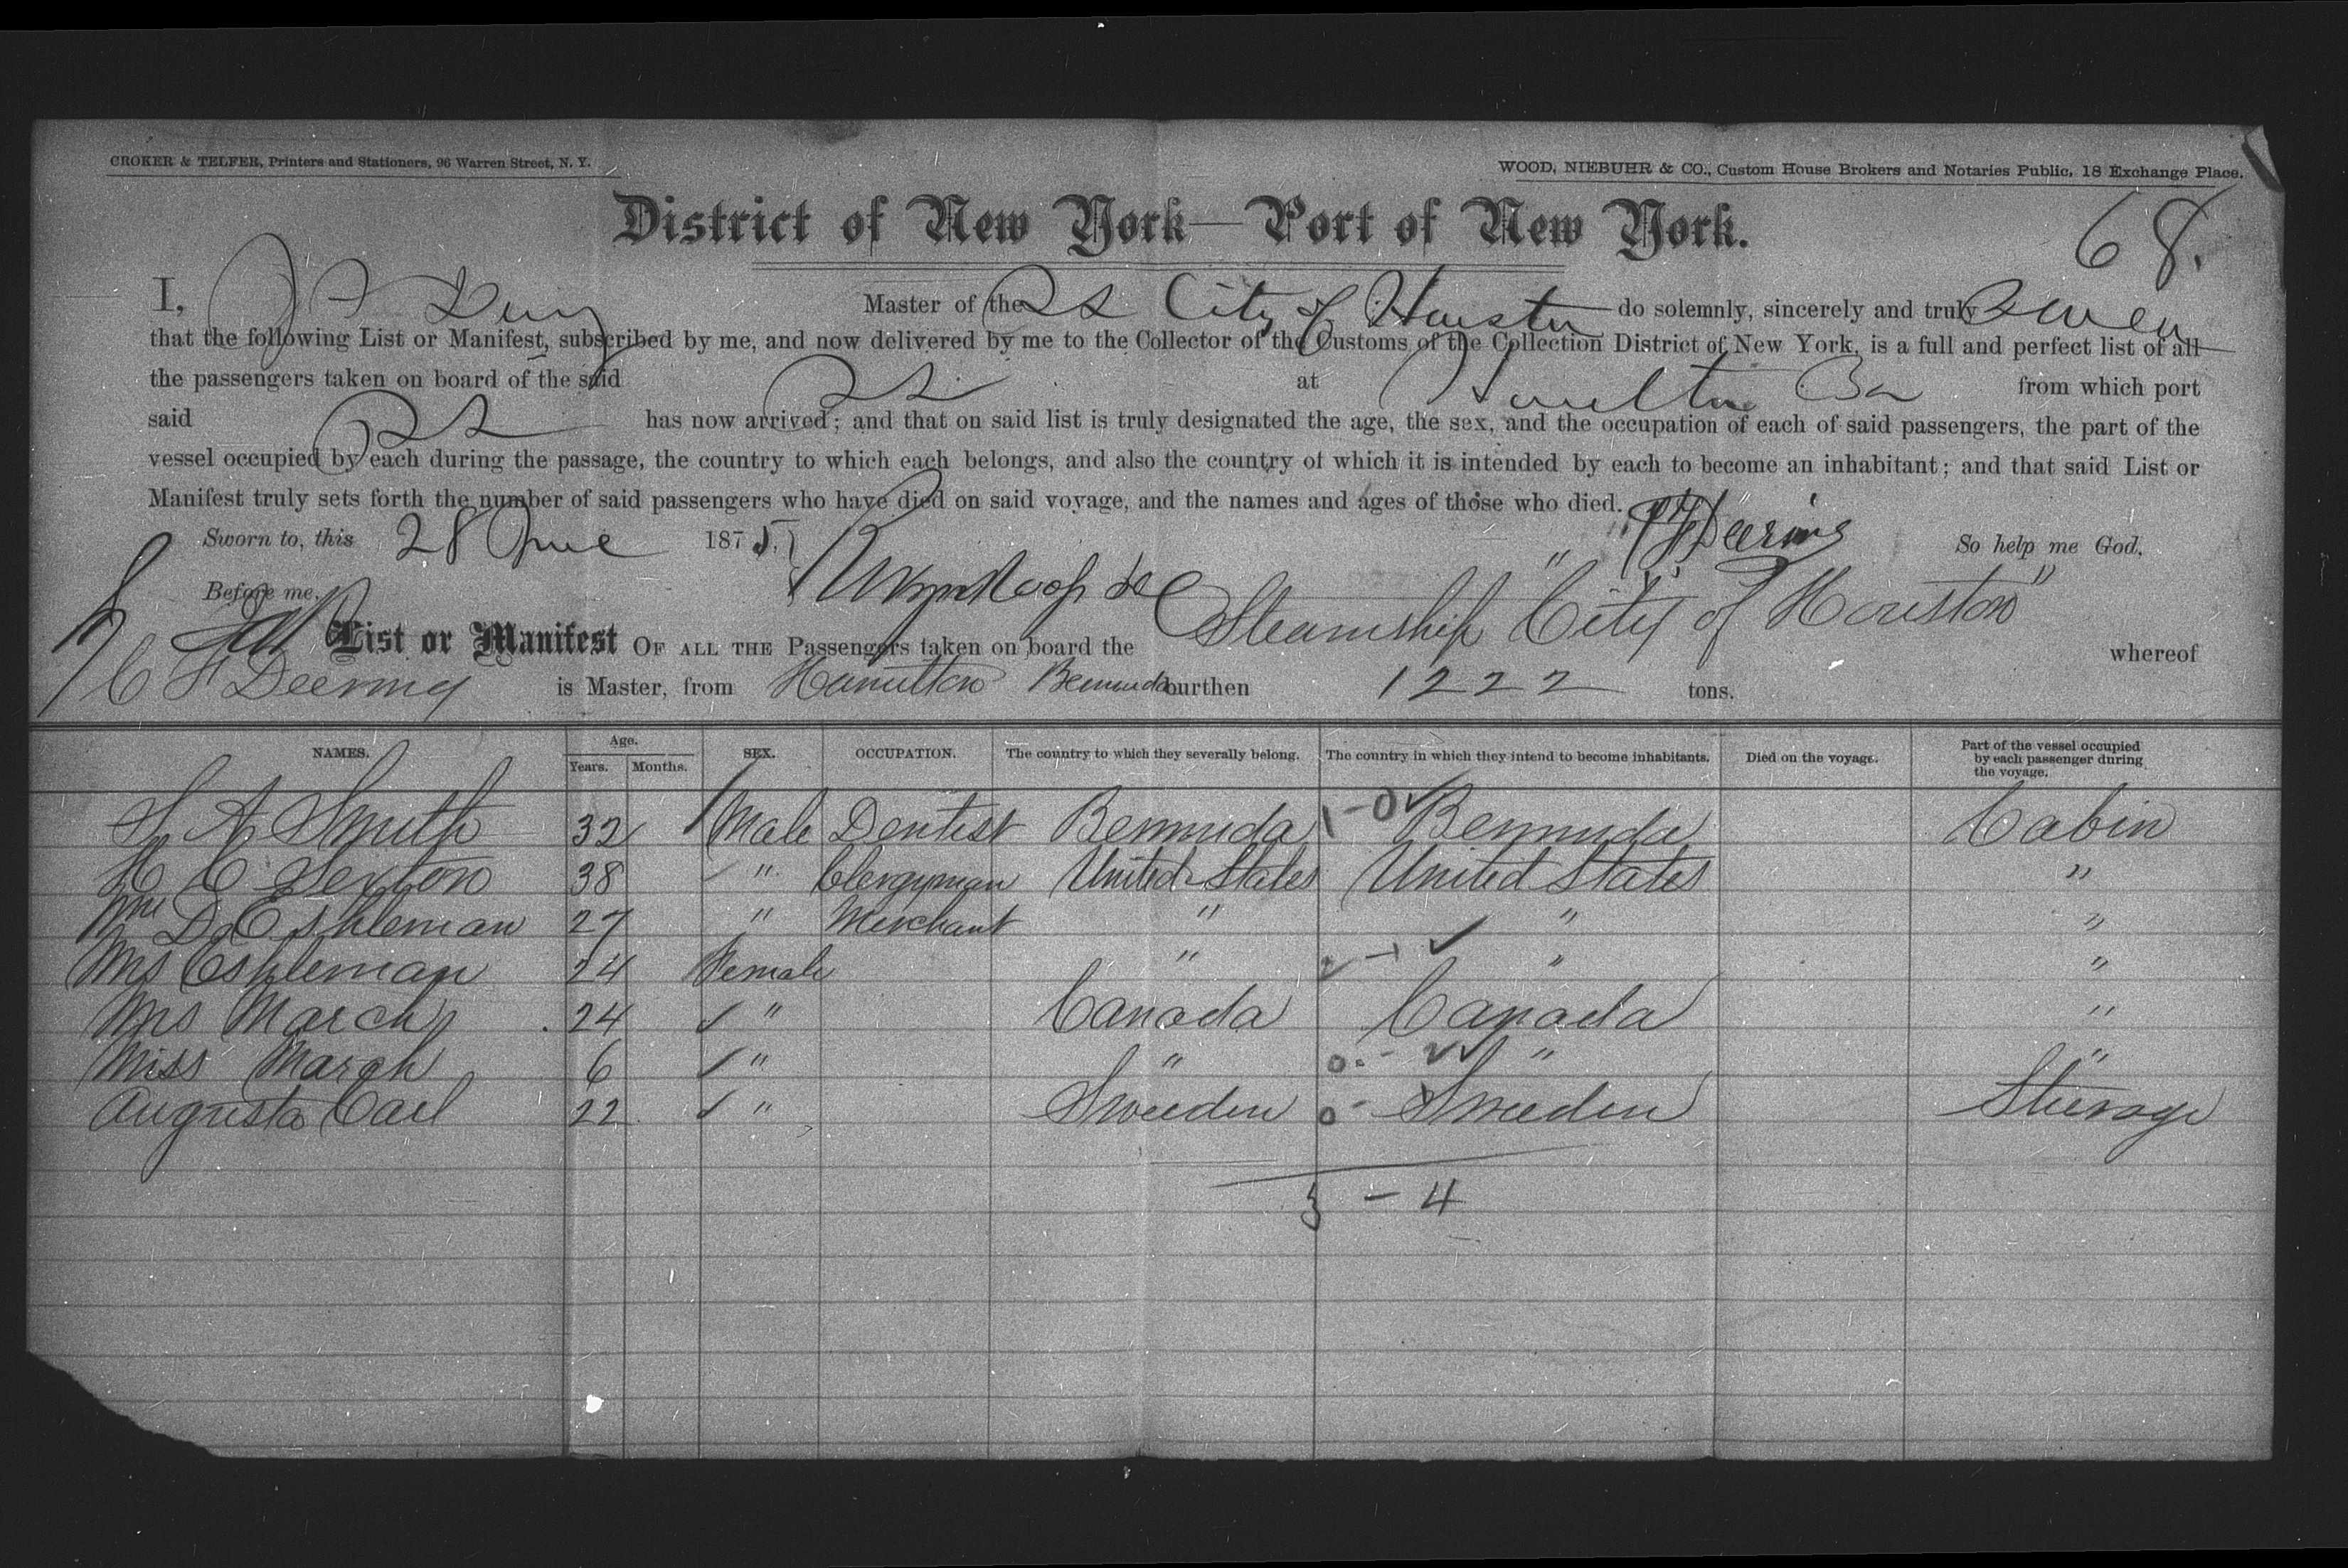 CROKER & TELFER, Printers and Stationers, 96 Warren Street, N. Y.
WOOD, NIEBUHR & CO., Custom House Brokers and Notaries Public, 18 Exchange Place.
District of New York—Port of New York.
68.
I, Master of the SS City of Houston do solemnly, sincerely and truly swear
that the following List or Manifest, subscribed by me, and now delivered by me to the Collector of the Customs of the Collection District of New York, is a full and perfect list of all
the passengers taken on board of the said SS at Hamilton from which port
said SS has now arrived; and that on said list is truly designated the age, the sex, and the occupation of each of said passengers, the part of the
vessel occupied by each during the passage, the country to which each belongs, and also the country of which it is intended by each to become an inhabitant; and that said List or
Manifest truly sets forth the number of said passengers who have died on said voyage, and the names and ages of those who died.
Sworn to, this 28 June 1875. Deering So help me God.
Before me,
List or Manifest OF ALL THE Passengers taken on board the Steamship "City of Houston" whereof
C F Deering is Master, from Hamilton Bermuda burthen 1222 tons.
NAMES. Age. Years. Months. SEX. OCCUPATION. The country to which they severally belong. The country in which they intend to become inhabitants. Died on the voyage. Part of the vessel occupied by each passenger during the voyage.
S A Smith 32 Male Dentist Bermuda 1 - 0 Bermuda Cabin
H C Sexton 38 " Clergyman United States United States "
D Eshleman 27 " Merchant " " "
Mrs Eshleman 24 Female " " "
Mrs March 24 " Canada Canada "
Miss March 6 " " " "
Augusta Carl 22 " Sweeden Sweeden Steerage
3 - 4